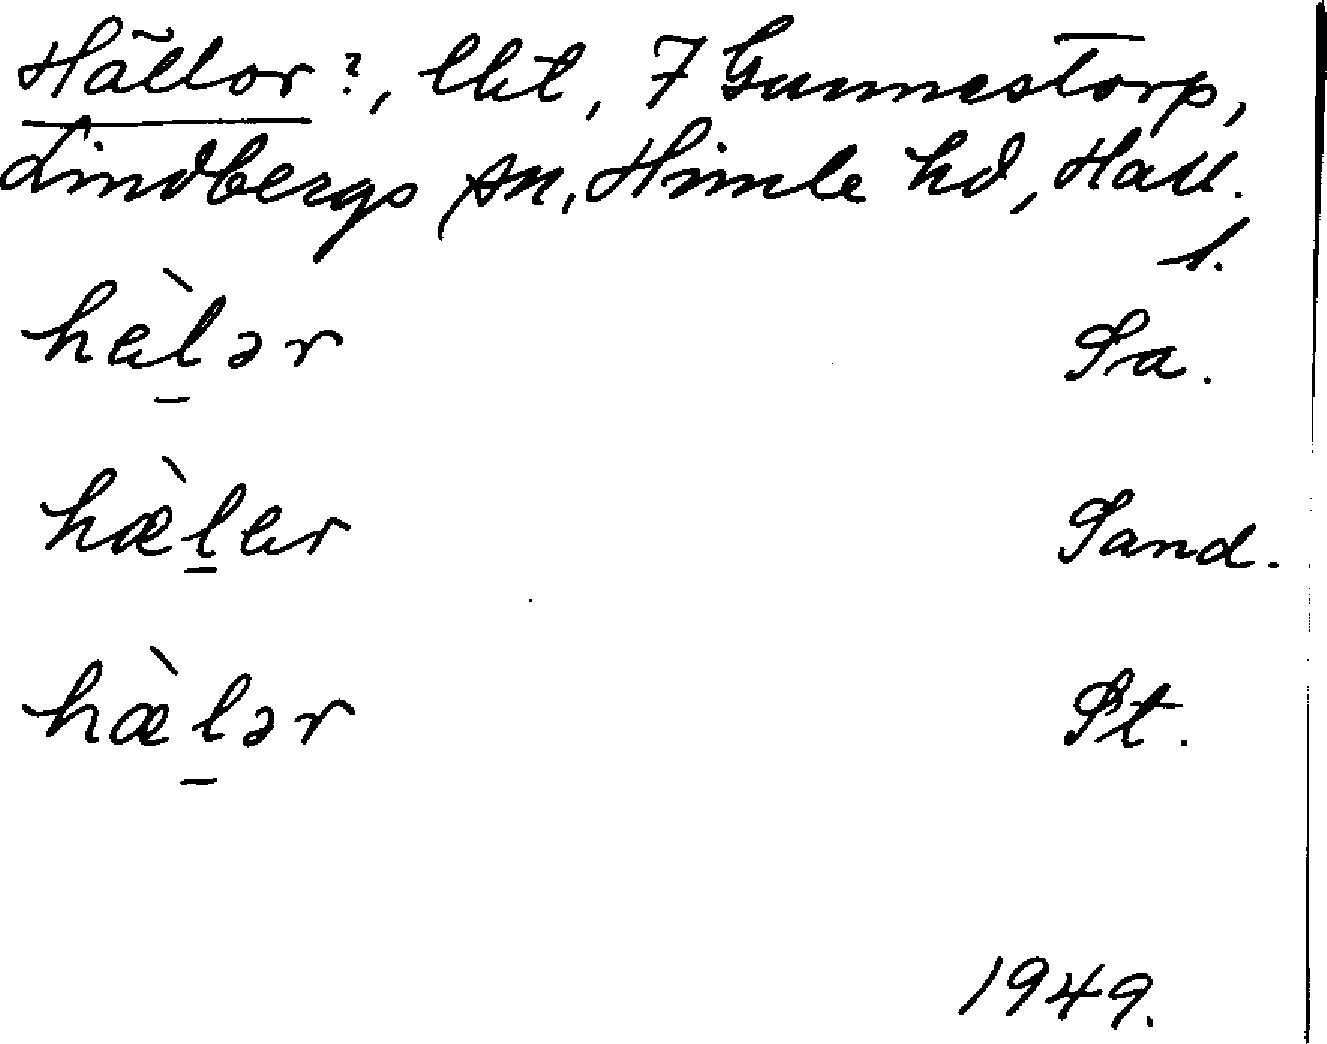 Hällor?, lkt, 7 Gunnestorp,
Lindbergs sn, Himle hd, Hall.
l.
hàl̠ər Sa.
hæ̀l̠ar Sand.
hæ̀l̠ər St.
1949.